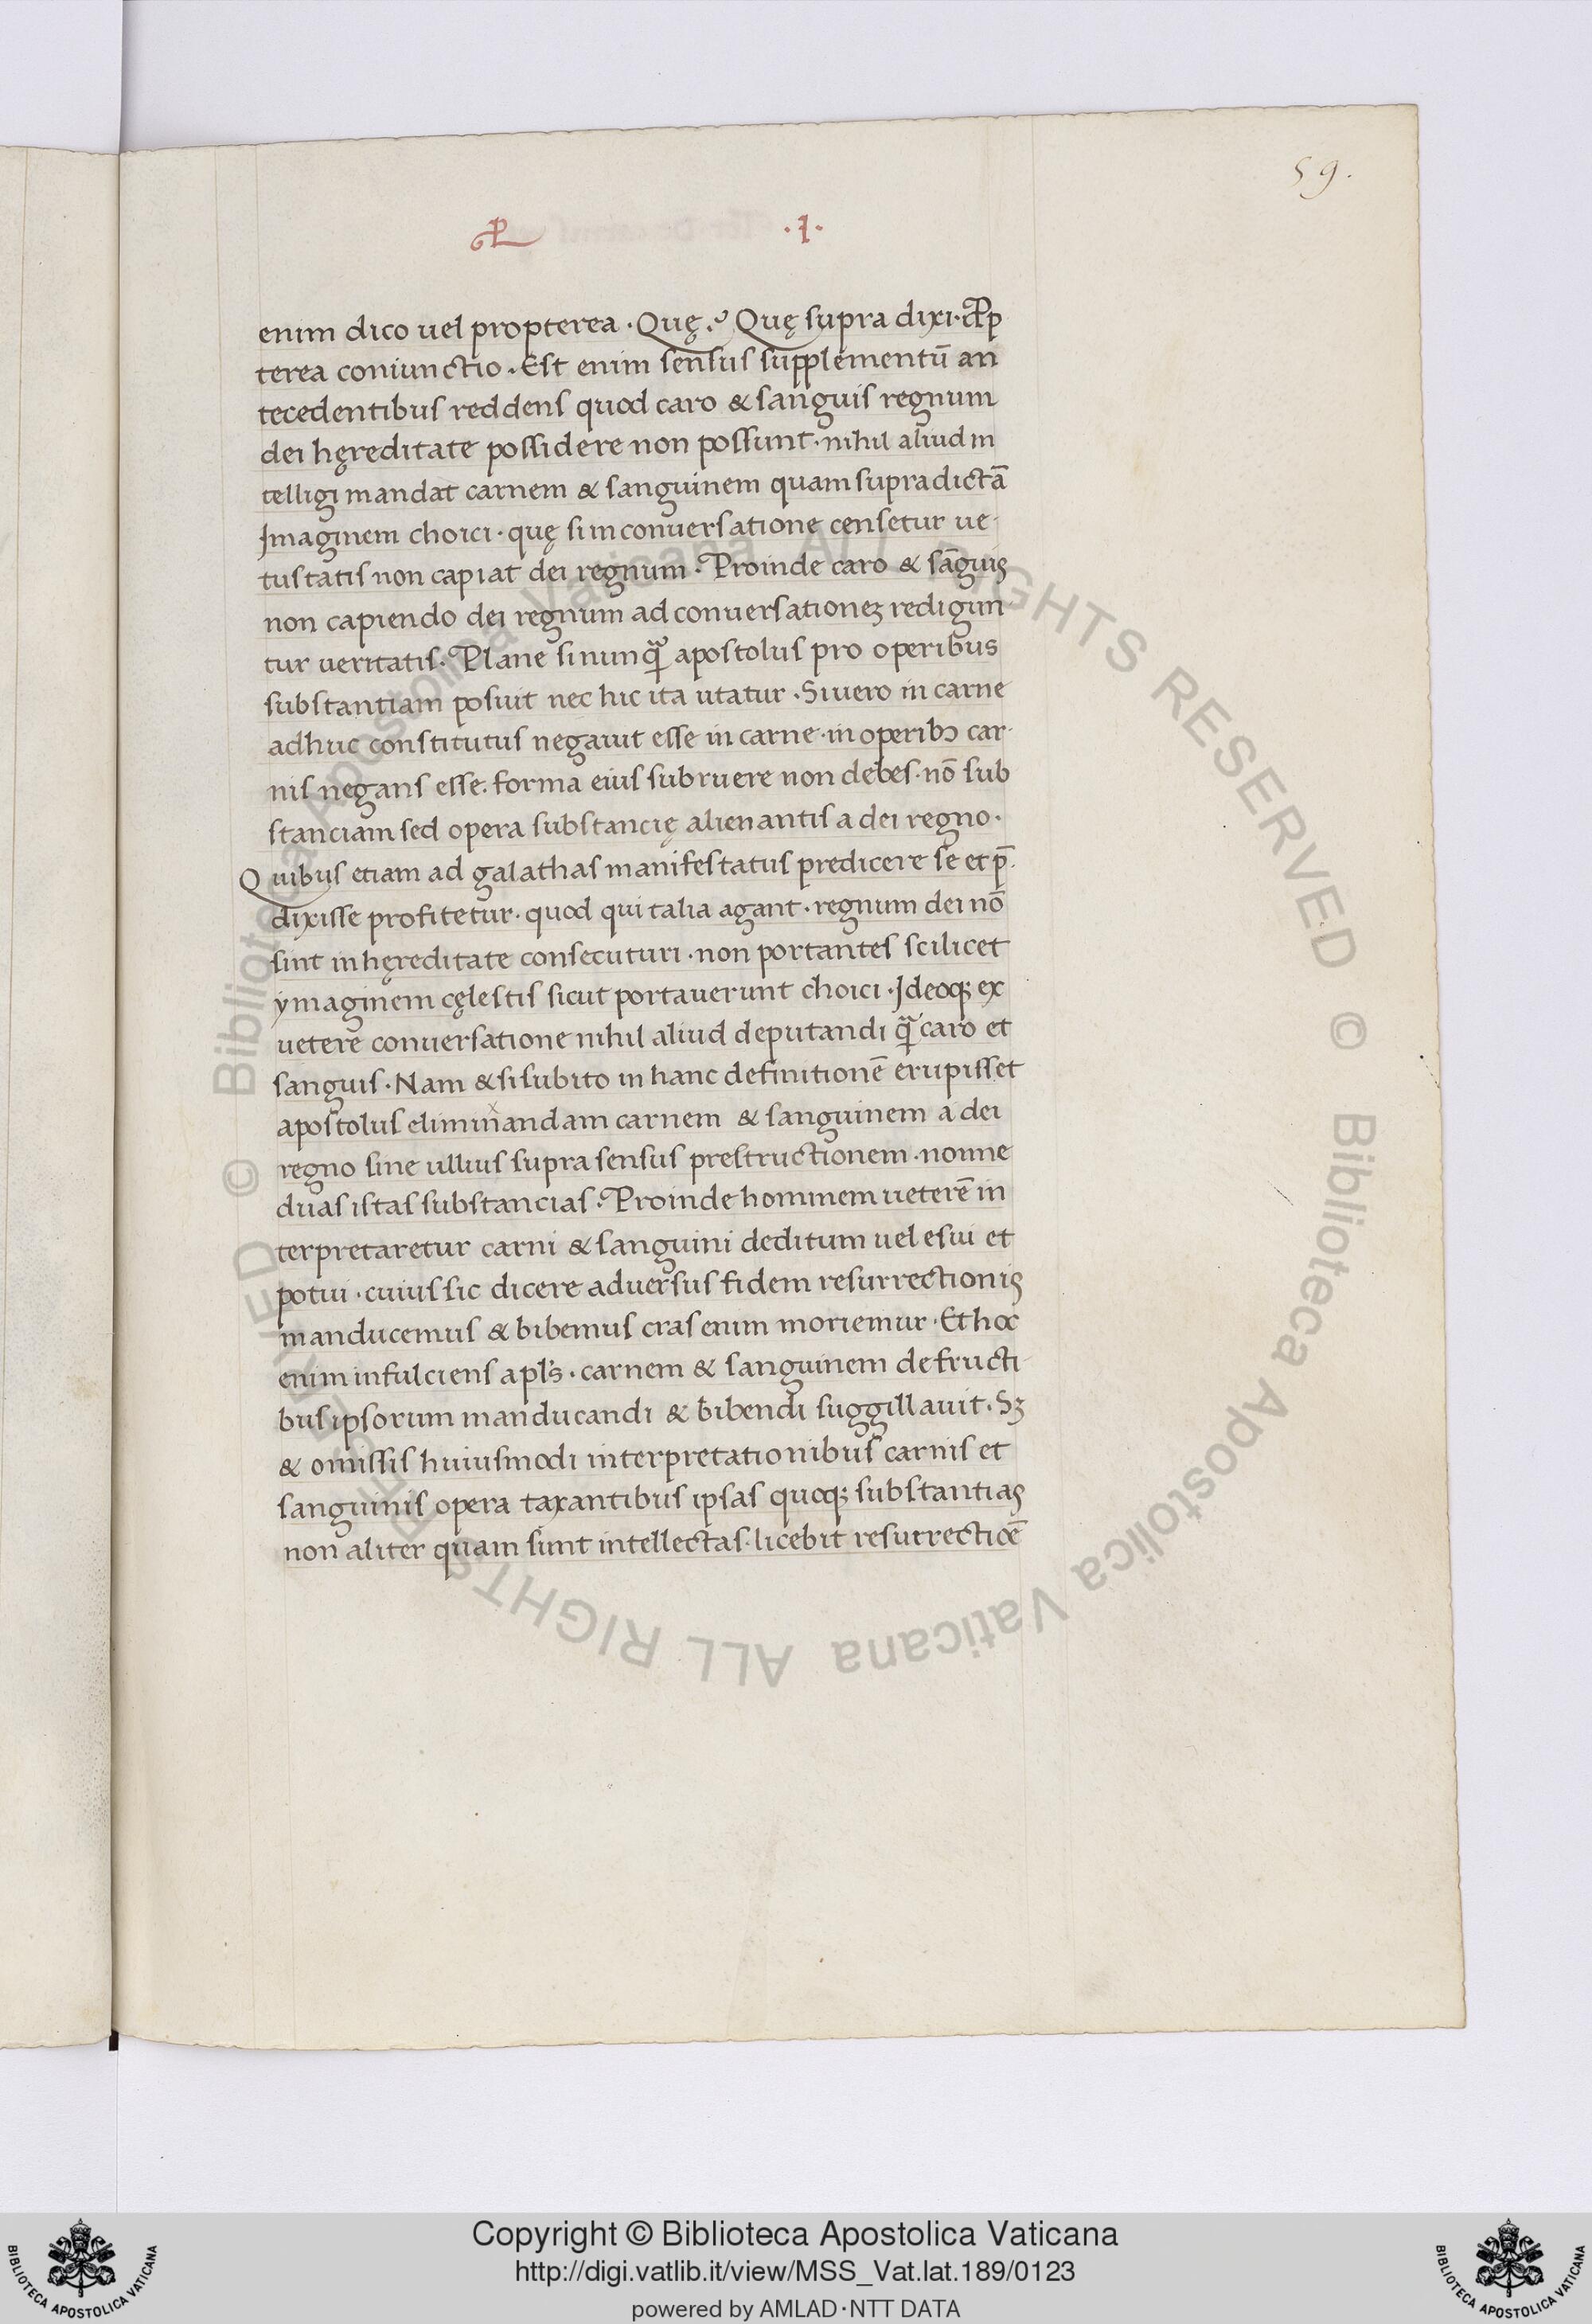 59.
.I.
enim dico uel propterea · Quę? Quę supra dixi · Prop
terea coniunctio · Est enim sensus supplementū an
tecedentibus reddens quod caro & sanguis regnum
dei hęreditate possidere non possunt · nihil aliud in
telligi mandat carnem & sanguinem quam supradictā
Jmaginem choici · quę si in conuersatione censetur ue-
tustatis non capiat dei regnum · Proinde caro & sāguis
non capiendo dei regnum ad conuersationeꝫ redigun-
tur ueritatis · Plane si nunqᷓ apostolus pro operibus
substantiam posuit nec hic ita utatur · Si uero in carne
adhuc constitutus negauit esse in carne · in operibꝰ car-
nis negans esse. forma eius subruere non debes · nō sub
stanciam sed opera substancię alienantis a dei regno ·
Quibus etiam ad galathas manifestatus predicere se et p̄-
dixisse profitetur · quod qui talia agant · regnum dei nō
sint in hęreditate consecuturi · non portantes scilicet
ymaginem cęlestis sicut portauerunt choici · Jdeoqꝫ ex
uetere conuersatione nihil aliud deputandi qᷓ caro et
sanguis · Nam & si subito in hanc definitionē erupisset
apostolus eliminandam carnem & sanguinem a dei
regno sine ullius supra sensus prestructionem · nonne
duas istas substancias? Proinde hominem ueterē in
terpretaretur carni & sanguini deditum uel esui et
potui · cuius sic dicere aduersus fidem resurrectionis
manducemus & bibemus cras enim moriemur · Et hoc
enim infulciens apl's · carnem & sanguinem de fructi-
bus ipsorum manducandi & bibendi suggillauit · Sꝫ
& omissis huiusmodi interpretationibus carnis et
sanguinis opera taxantibus ipsas quoqꝫ substantias
non aliter quam sunt intellectas · licebit resurrectiōē
Copyright © Biblioteca Apostolica Vaticana
http://digi.vatlib.it/view/MSS_Vat.lat.189/0123
powered by AMLAD·NTT DATA
© Biblioteca Apostolica Vaticana ALL RIGHTS RESERVED © Biblioteca Apostolica Vaticana ALL RIGHTS RESERVED
BIBLIOTECA APOSTOLICA VATICANA
BIBLIOTECA APOSTOLICA VATICANA